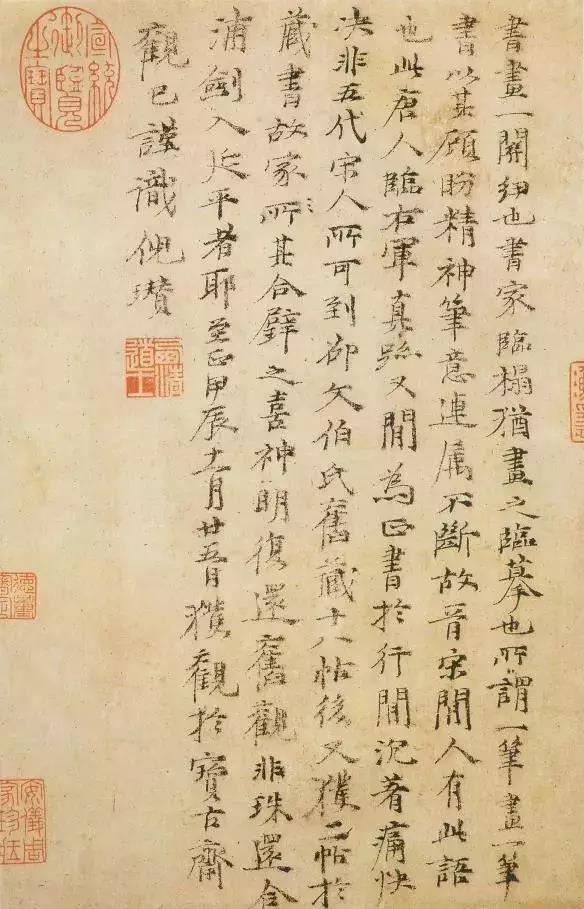 書畫一關紐也書家臨榻猶畫之臨摹也所謂一筆畫一筆
書以其顧盼精神筆意連属不斷故晉宋間人有此語
也此唐人臨右軍真跡又間為正書於行間沉著痛快
决非五代宋人所可到卻文伯氏舊藏十八帖後又獲二帖於
藏書故家所其合璧之喜神明復還舊觀非珠還合
浦劍入延平者耶至正甲辰十一月廿五日獲觀於寶古齋
觀已謹識倪瓚
宣統御覽之寶
安儀周家珍藏